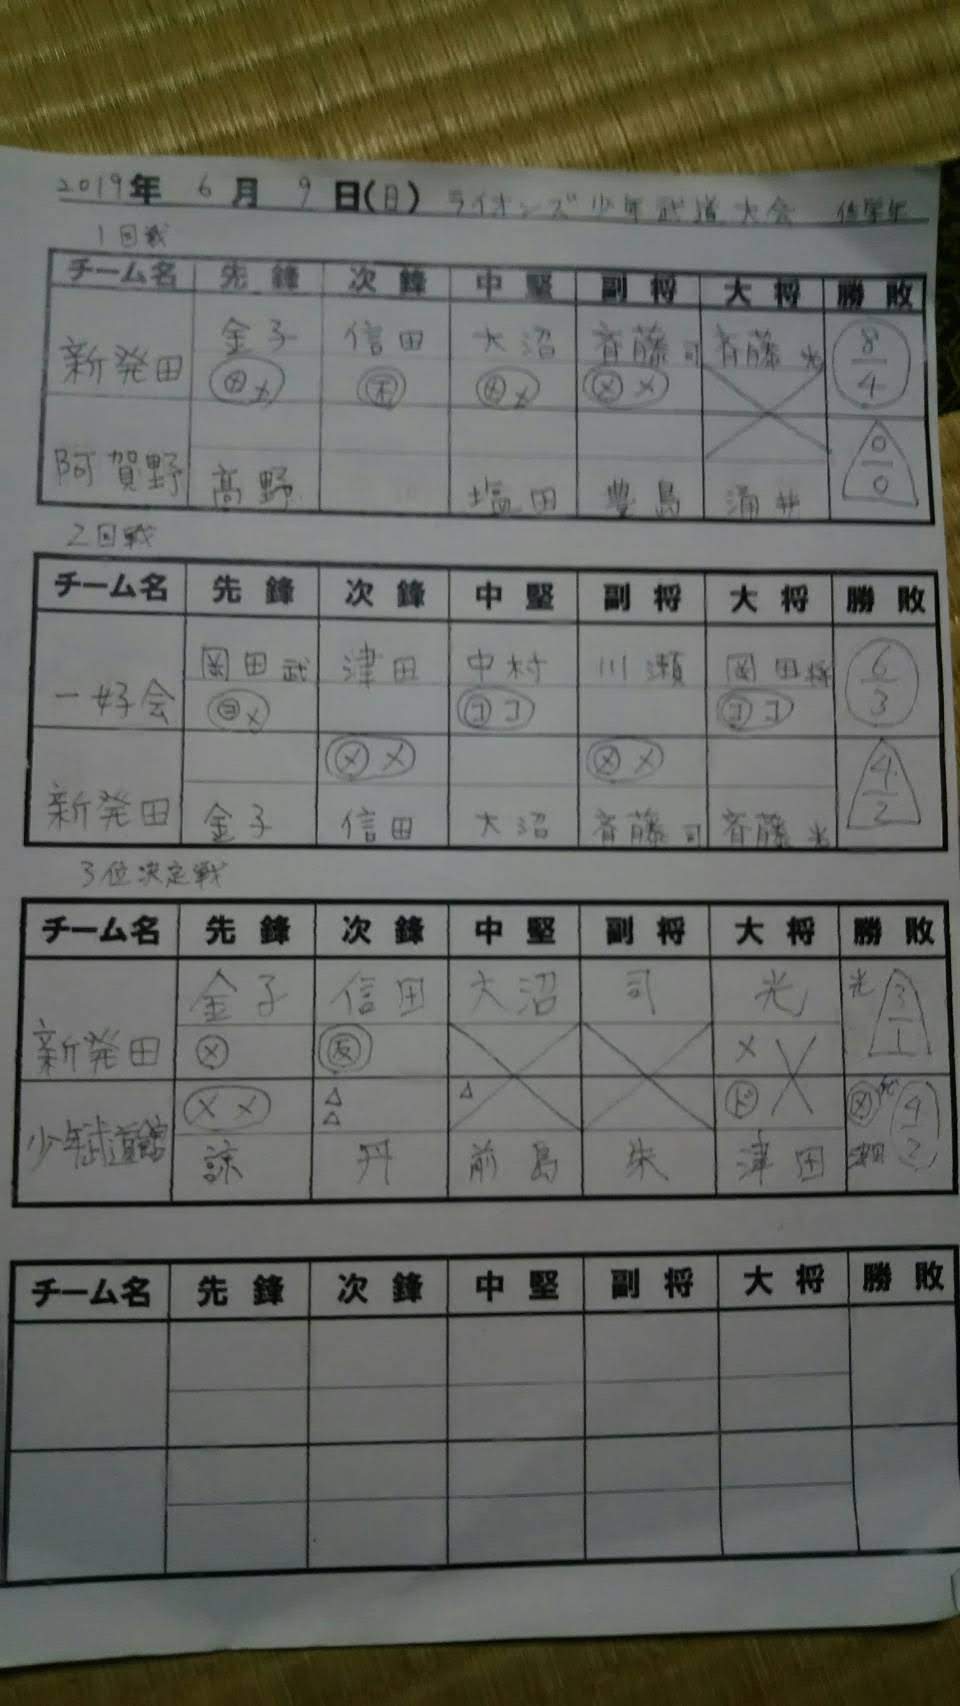 2019年 6月 9日(日) ライオンズ少年武道大会 低学年
1回戦
チーム名 先鋒 次鋒 中堅 副将 大将 勝敗
新発田 金子 信田 大沼 斉藤司 斉藤光 8/4
メメ 不 メメ メメ
阿賀野 高野 塩田 豊島 涌井 0/0
2回戦
チーム名 先鋒 次鋒 中堅 副将 大将 勝敗
一好会 岡田武 津田 中村 川瀬 岡田将 6/3
コメ ココ ココ
メメ メメ
新発田 金子 信田 大沼 斉藤司 斉藤光 4/2
3位決定戦
チーム名 先鋒 次鋒 中堅 副将 大将 勝敗
新発田 金子 信田 大沼 司 光 光 3/1
メ 反 メ
メメ △△ △ ド メ 4/2
少年武道館 諒 丹 前島 朱 津田
チーム名 先鋒 次鋒 中堅 副将 大将 勝敗